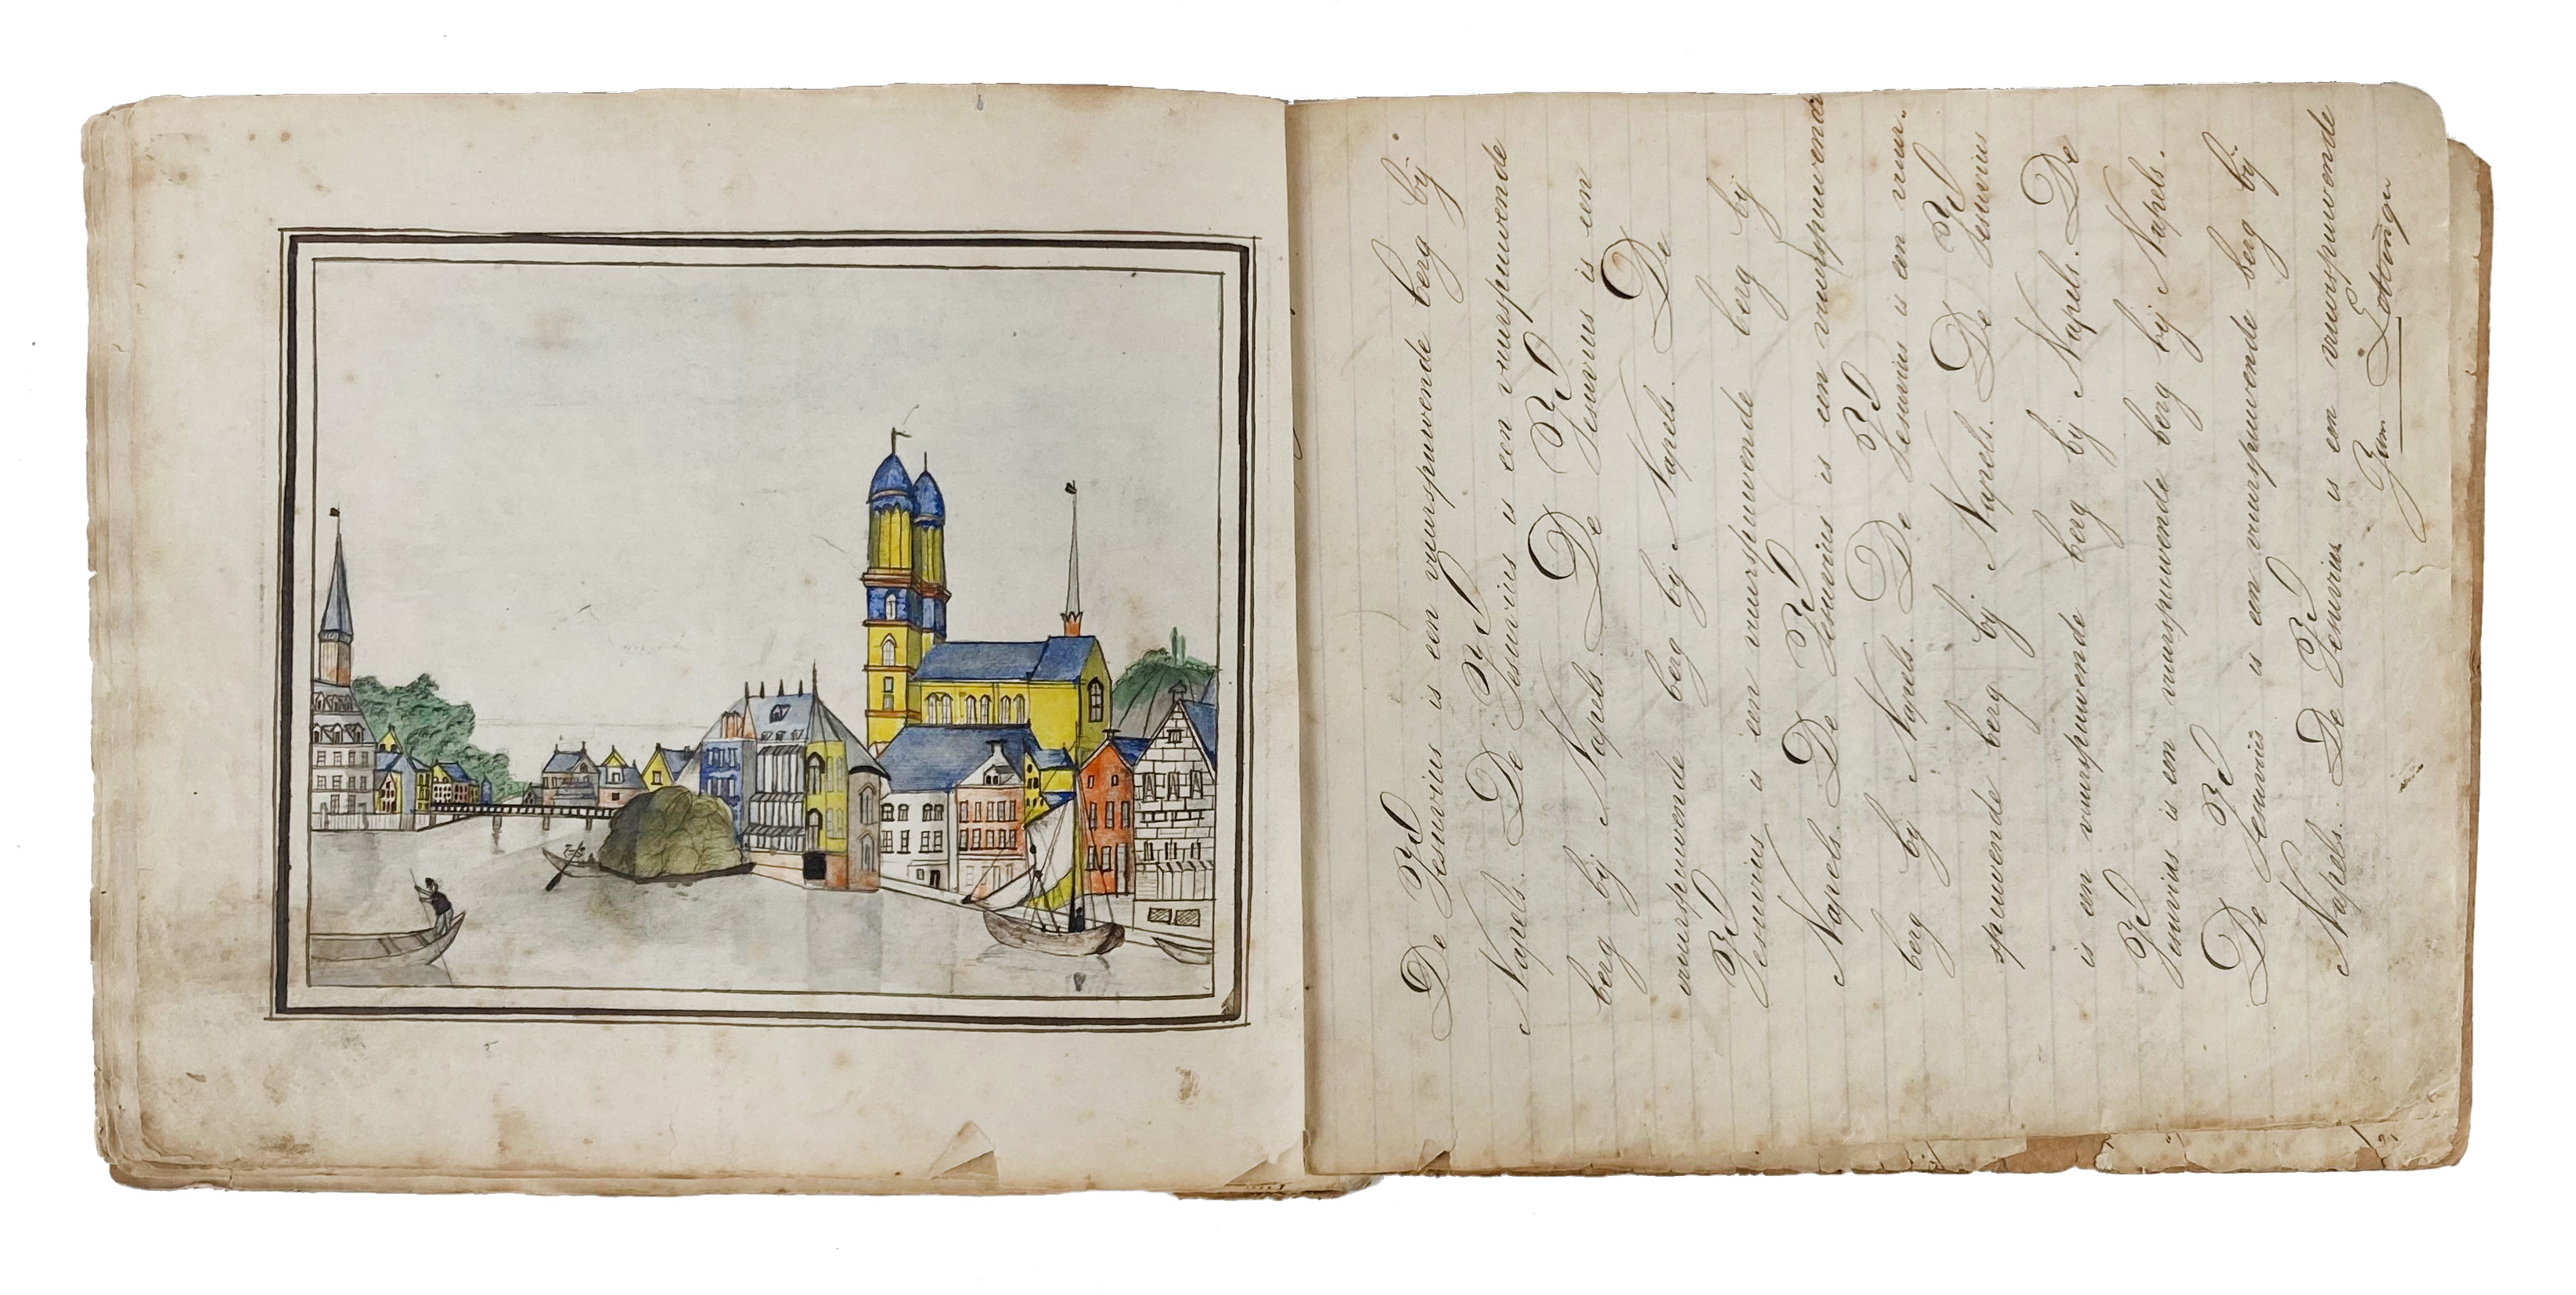 De Vesuvius is een vuurspuwende berg bij
Napels. De Vesuvius is een vuurspuwende
berg bij Napels. De Vesuvius is een
vuurspuwende berg bij Napels. De
Vesuvius is een vuurspuwende berg bij
Napels. De Vesuvius is een vuurspuwende
berg bij Napels. De Vesuvius is een vuur-
spuwende berg bij Napels. De Vesuvius
is een vuurspuwende berg bij Napels. De
Vesuvius is een vuurspuwende berg bij Napels.
De Vesuvius is een vuurspuwende berg bij
Napels. De Vesuvius is een vuurspuwende
Lottinga